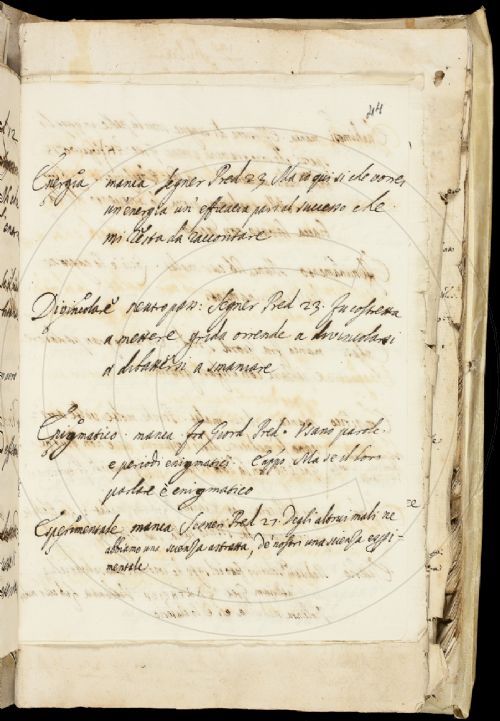 44
Energia manca Segner Pred. 23. Ma io qui sì che vorrei
un'energia un'efficacia pari al successo che
mi resta da raccontare
Divincolare neutropass: Segner Pred. 23. Fu costretta
a mettere grida orrende a divincolarsi
a dibattersi a smaniare
Enigmatico manca fra Giord. Pred. Usano parole
e periodi enigmatici. Ma se il lor
parlare è enigmatico
Esperimentale manca Segneri Pred. 21. Degli altrui mali ne
abbiamo una scienza astratta, de nostri una scienza espe-
mentale